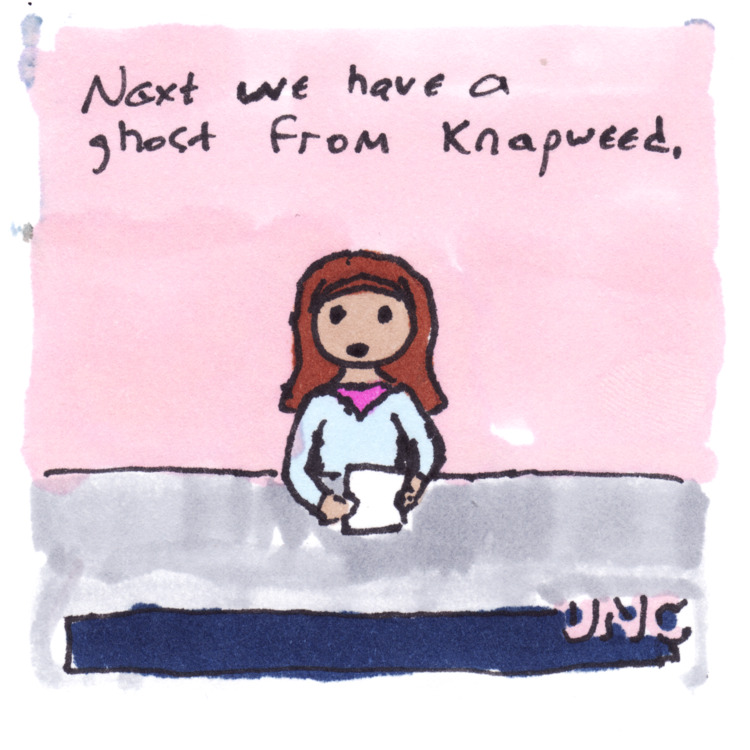 Next we have a
ghost from Knapweed.
UNC